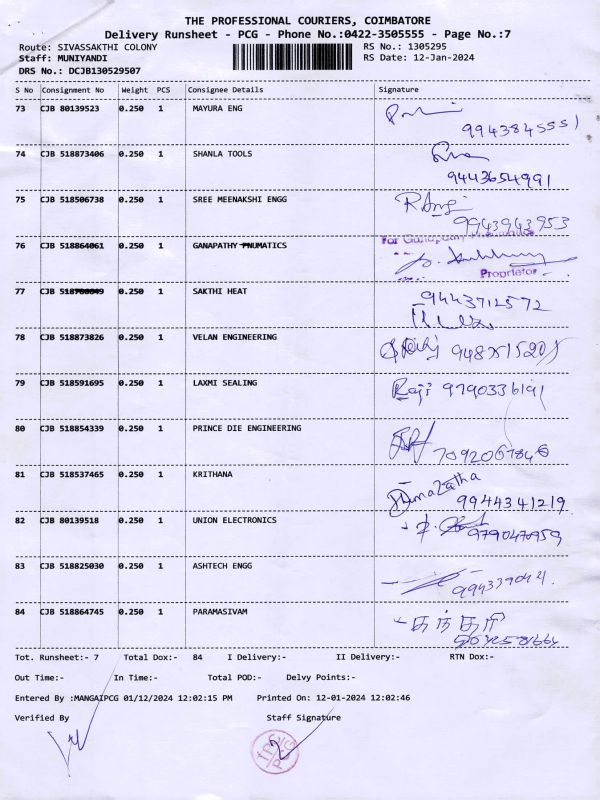 THE PROFESSIONAL COURIERS, COIMBATORE
Delivery Runsheet - PCG - Phone No.:0422-3505555 - Page No.:7
Route: SIVASSAKTHI COLONY RS No.: 1305295
Staff: MUNIYANDI RS Date: 12-Jan-2024
DRS No.: DCJB130529507
S No Consignment No Weight PCS Consignee Details Signature
73 CJB 80139523 0.250 1 MAYURA ENG
9943845551
74 CJB 518873406 0.250 1 SHANLA TOOLS
9443654991
75 CJB 518506738 0.250 1 SREE MEENAKSHI ENGG
9943943953
76 CJB 518864061 0.250 1 GANAPATHY PNUMATICS
For
Proprietor
77 CJB 0.250 1 SAKTHI HEAT 9443712572
78 CJB 518873826 0.250 1 VELAN ENGINEERING
79 CJB 518591695 0.250 1 LAXMI SEALING Raji 9790336191
80 CJB 518854339 0.250 1 PRINCE DIE ENGINEERING
81 CJB 518537465 0.250 1 KRITHANA
9944341219
82 CJB 80139518 0.250 1 UNION ELECTRONICS
83 CJB 518825030 0.250 1 ASHTECH ENGG
84 CJB 518864745 0.250 1 PARAMASIVAM
Tot. Runsheet:- 7 Total Dox:- 84 I Delivery:- II Delivery:- RTN Dox:-
Out Time:- In Time:- Total POD:- Delvy Points:-
Entered By :MANGAIPCG 01/12/2024 12:02:15 PM Printed On: 12-01-2024 12:02:46
Verified By Staff Signature
TPC
PCG